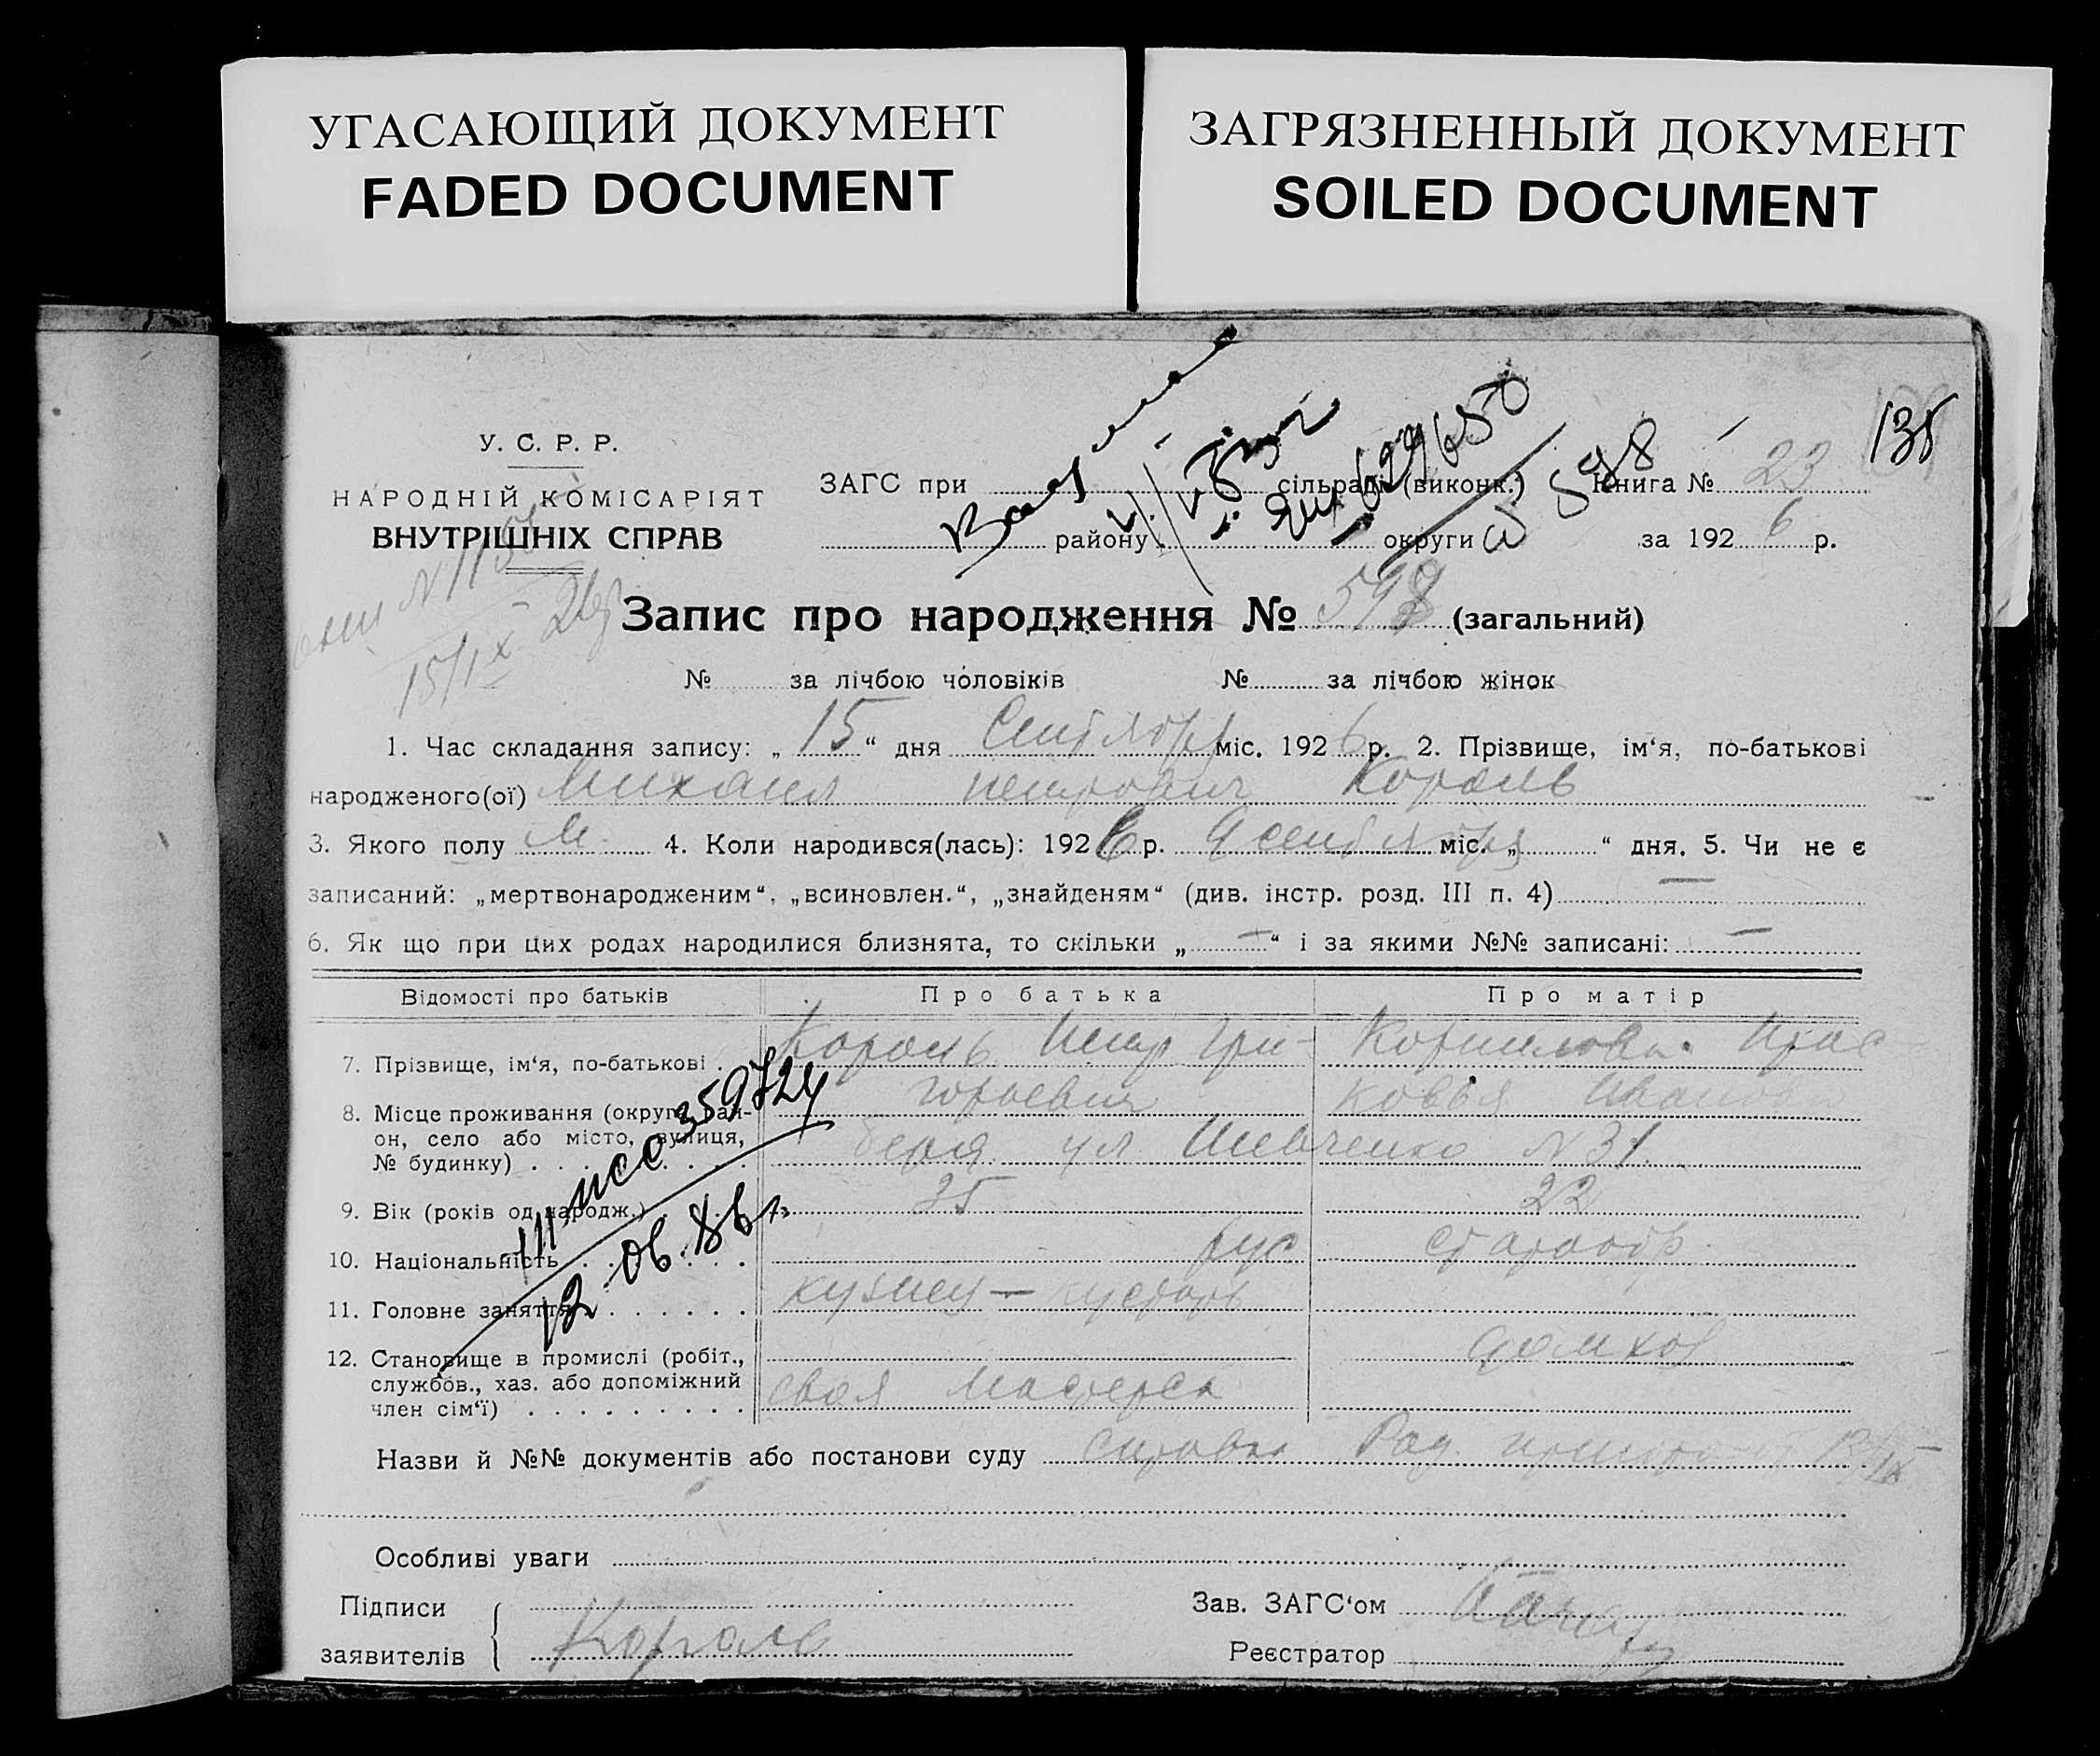 УГАСАЮЩИЙ ДОКУМЕНТ
FADED DOCUMENT
ЗАГРЯЗНЕННЫЙ ДОКУМЕНТ
SOILED DOCUMENT
135
У. С. Р. Р.
НАРОДНІЙ КОМІСАРІЯТ
ВНУТРІШНІХ СПРАВ
ЗАГС при сільраді (виконк.) Книга № 23
району округи за 1926 р.
N 1150
15/IX 26
Запис про народження № 598 (загальний)
№ за лічбою чоловіків № за лічбою жінок
1. Час складання запису: „15“ дня Сентября міс. 1926 р. 2. Прізвище, ім‘я, по-батькові
народженого(ої) Михаил Петрович Король
3. Якого полу М 4. Коли народився(лась): 1926 р. 9 сентября міс. „ “ дня. 5. Чи не є
записаний: „мертвонародженим“, „всиновлен.“, „знайденям“ (див. інстр. розд. III п. 4) —
6. Як що при цих родах народилися близнята, то скільки „—“ і за якими №№ записані: —
Відомості про батьків Про батька Про матір
7. Прізвище, ім‘я, по-батькові . Король Петр Гри- Корнилова Прас
горьевич ковья Иванов
8. Місце проживання (округа, рай-
он, село або місто, вулиця,
№ будинку) . . . ул Шевченко N 31
9. Вік (років од народж.) 35 22
10. Національність рус старообр.
11. Головне заняття кузнец — кустарь
домхоз
12. Становище в промислі (робіт.,
службов., хаз. або допоміжний
член сім‘ї) своя мастерск
359724
12.06.86 г.
Назви й №№ документів або постанови суду справка Рад.
Особливі уваги
Підписи
заявителів Король
Зав. ЗАГС‘ом
Реєстратор